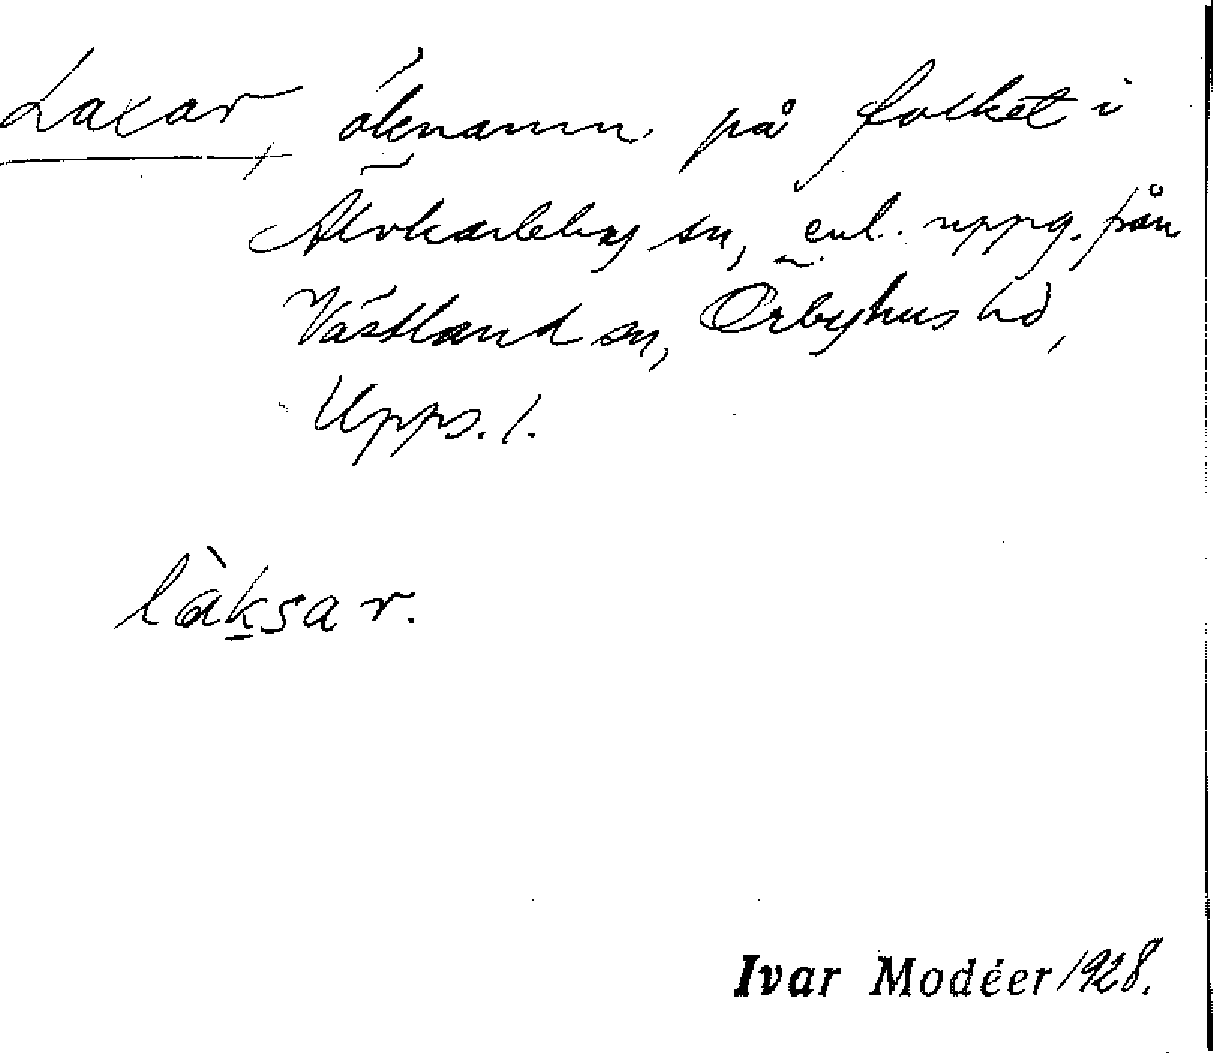 Laxar, öknamn på folket i
Älvkarleby sn, enl. uppg. från
Västland sn, Örbyhus hd,
Upps. l.
làksar.
Ivar Modéer 1928.